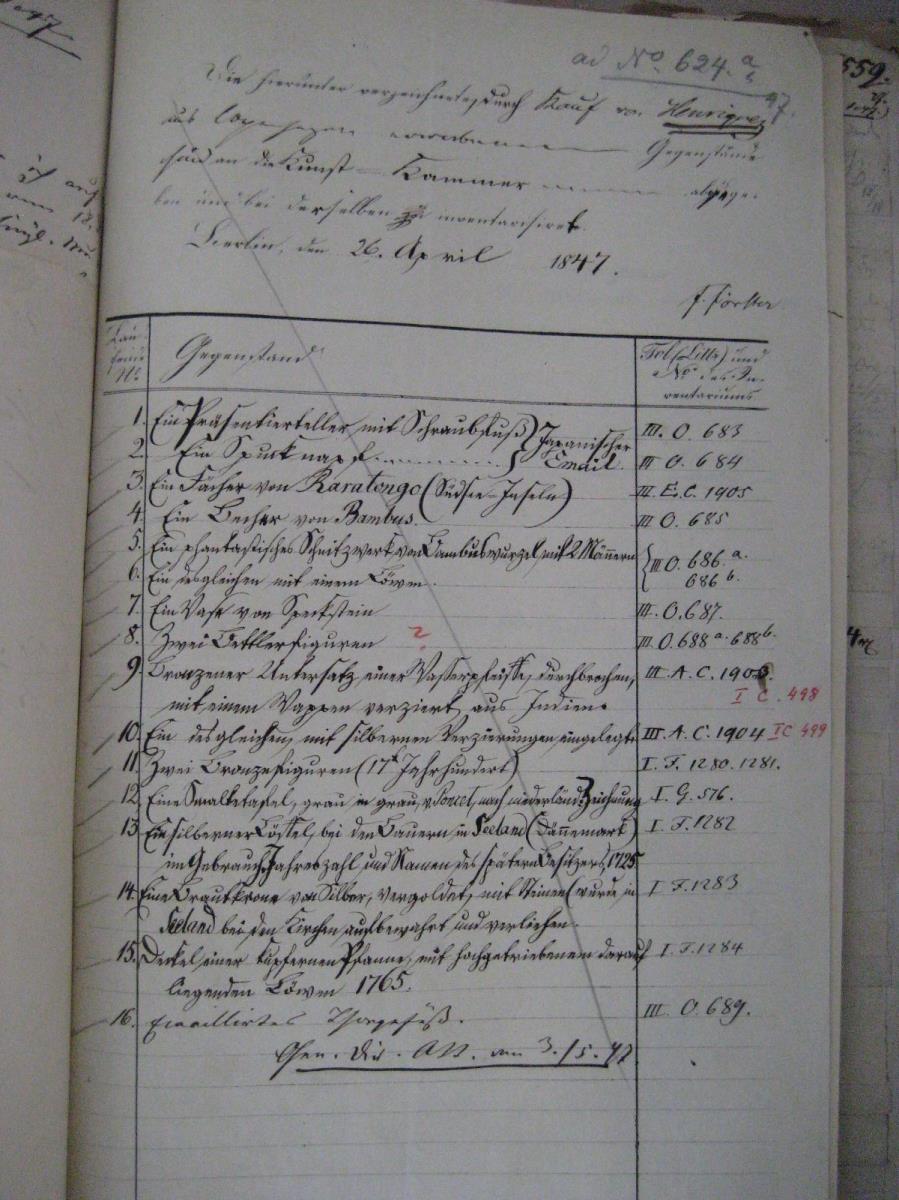 ad No. 624. a
Die hierunter verzeichneten, durch Kauf von Henriques
aus Copenhagen erworbenen Gegenstände
sind an die Kunst-Kammer abgege-
ben und bei derselben zu inventarisiret.
Berlin, den 26. April 1847.
F. Förster
Lau-
fende
No.
Gegenstand
Fol. (Littr) und
No. des In-
ventariums
1. Ein Präsentierteller mit Schraubfuß } Japanischer III. O. 683
2. Ein Spucknapf } Email. III O. 684
3. Ein Fächer von Raratongo (Südsee-Inseln) III. E. C. 1905
4. Ein Becher von Bambus. III O. 685
5. Ein phantastisches Schnitzwerk von Bambuswurzel, mit 2 Männern { III O. 686. a.
6. Ein desgleichen mit einem Löwen. 686 b.
7. Ein Vase von Speckstein III. O. 687.
8. Zwei Bettlerfiguren ? III. O. 688 a. 688 b.
9. Bronzener Untersatz einer Wasserpfeiffe, durchbrochen, III. A. C. 1903.
mit einem Wappen verziert, aus Indien. I C. 498
10. Ein desgleichen, mit silbernen Verzierungen eingelegt. III. A. C. 1904 I C 499
11. Zwei Bronzefiguren (17t Jahrhundert) I. F. 1280. 1281.
12. Eine Smalketafel, grau in grau, v. Poncet, nach niederländ. Zeichnung I. G. 576.
13. Ein silberner Löffel, bei den Bauern in Seeland (Dännemark) I. F. 1282
im Gebrauch. Jahreszahl und Namen des spätern Besitzers, 1725
14. Eine Brautkrone von Silber, vergoldet, mit Steinen (wurde in I F. 1283
Seeland bei den Kirchen aufbewahrt und verliehen.
15. Deckel einer kupfernen Pfanne, mit hochgetriebenem darauf I. F. 1284
liegenden Löwen 1765.
16. Emaillirtes III. O. 689.
Gen. Dir. am 3./5. 47
559.